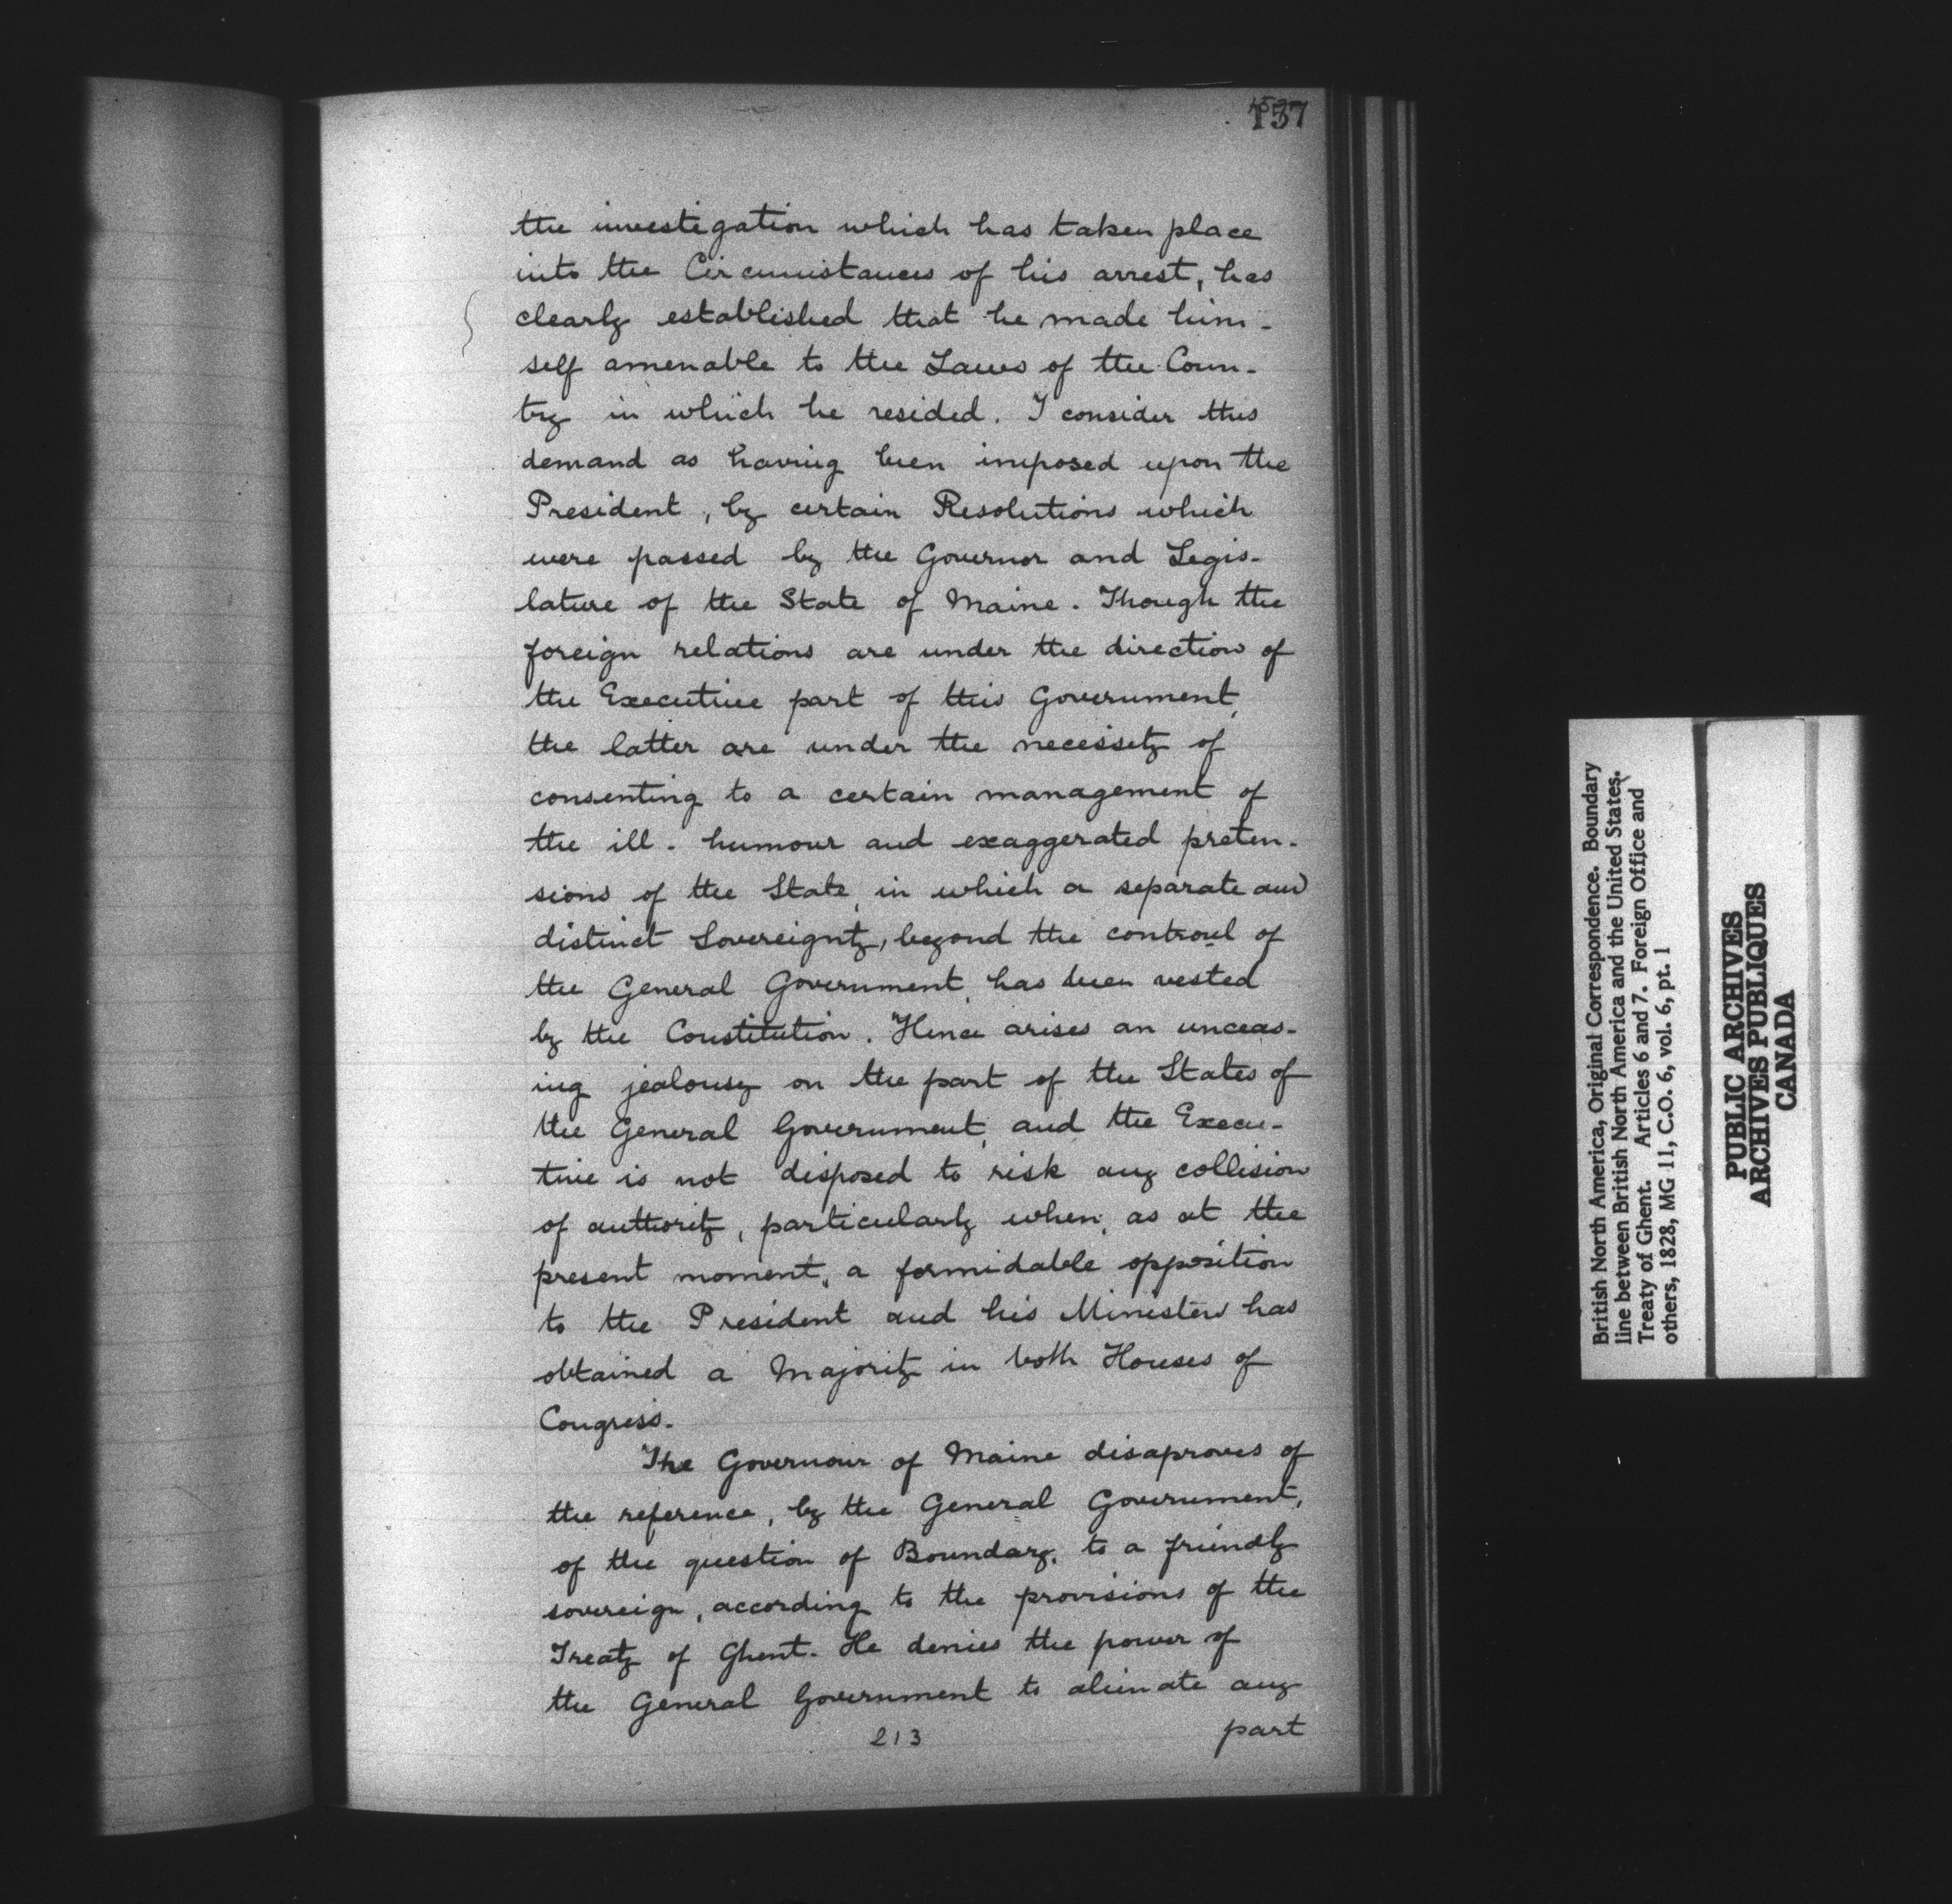 137
the investigation which has taken place
into the Circumstances of his arrest, has
clearly established that he made him-
self amenable to the Laws of the Coun-
try in which he resided. I consider this
demand as having been imposed upon the
President, by certain Resolutions which
were passed by the Governor and Legis-
lature of the State of Maine. Though the
foreign relations are under the direction of
the Executive part of this Government,
the latter are under the necessity of
consenting to a certain management of
the ill-humour and exaggerated preten-
sions of the State, in which a separate and
distinct Sovereignty, beyond the controul of
the General Government, has been vested
by the Constitution. Hence arises an unceas-
ing jealousy on the part of the States of
the General Government, and the Execu-
tive is not disposed to risk any collision
of authority, particularly when, as at the
present moment, a formidable opposition
to the President and his Ministers has
obtained a Majority in both Houses of
Congress.
The Governour of Maine disaproves of
the reference, by the General Government,
of the question of Boundary, to a friendly
sovereign, according to the provisions of the
Treaty of Ghent. He denies the power of
the General Government to alienate any
213
part
British North America, Original Correspondence. Boundary
line between British North America and the United States.
Treaty of Ghent. Articles 6 and 7. Foreign Office and
others, 1828, MG 11, C.O. 6, vol. 6, pt. 1
PUBLIC ARCHIVES
ARCHIVES PUBLIQUES
CANADA